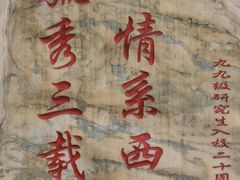 九九级研究生入校二十周
情系西
秀三载